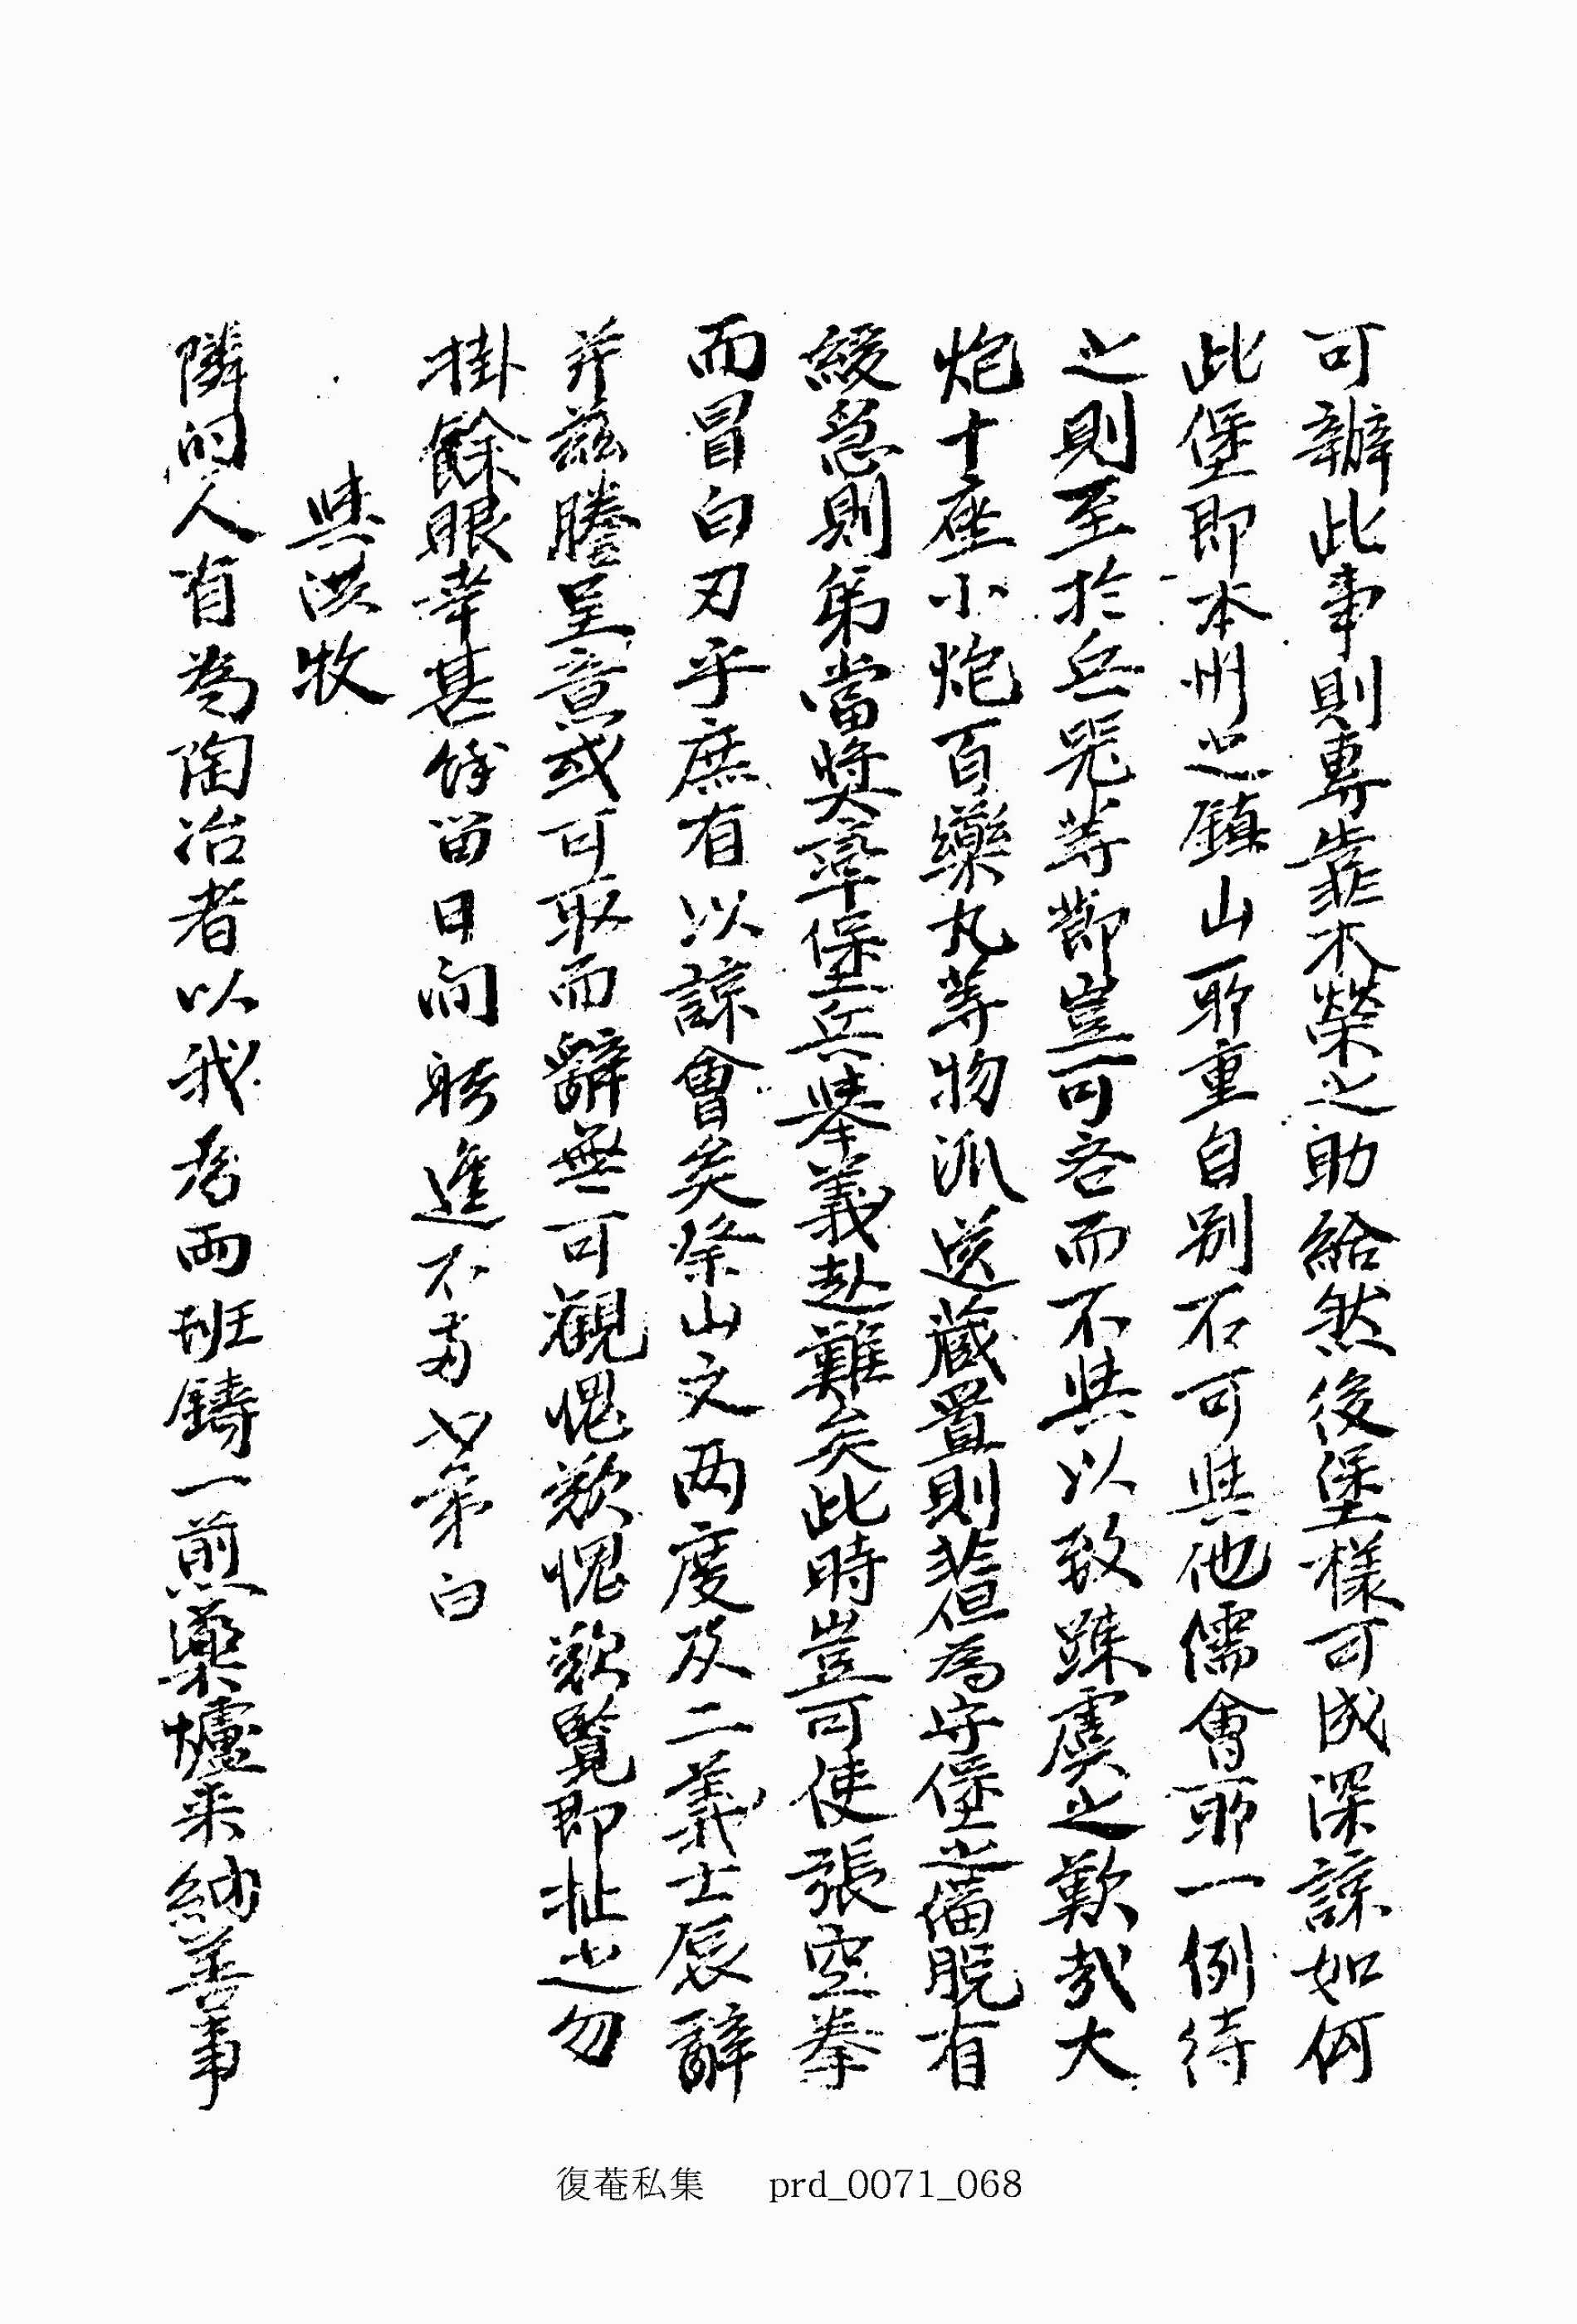 可辦此事則專靠柴榮之助給然後堡樣可成深諒如何
此堡即本州之鎭山所重自別不可與他儒會所一例待
之則至於兵器等節豈可吝而不與以致踈虞之歎哉大
炮十座小炮百藥丸等物派送藏置則詎爲守堡之備脫有
緩急則弟當奬率堡兵擧義赴難矣此時豈可使張空拳
而冒白刃乎庶有以諒會矣祭山文两度及二義士哀辭
并玆謄呈意或可取而辭無可觀愧歎愧歎覽即扯之勿
掛餘眼幸甚餘留日間躬進不畱 弟白
與洪牧
隣的人有爲陶冶者以我老两班鑄一煎藥爐来納善事
復菴私集 prd_0071_068